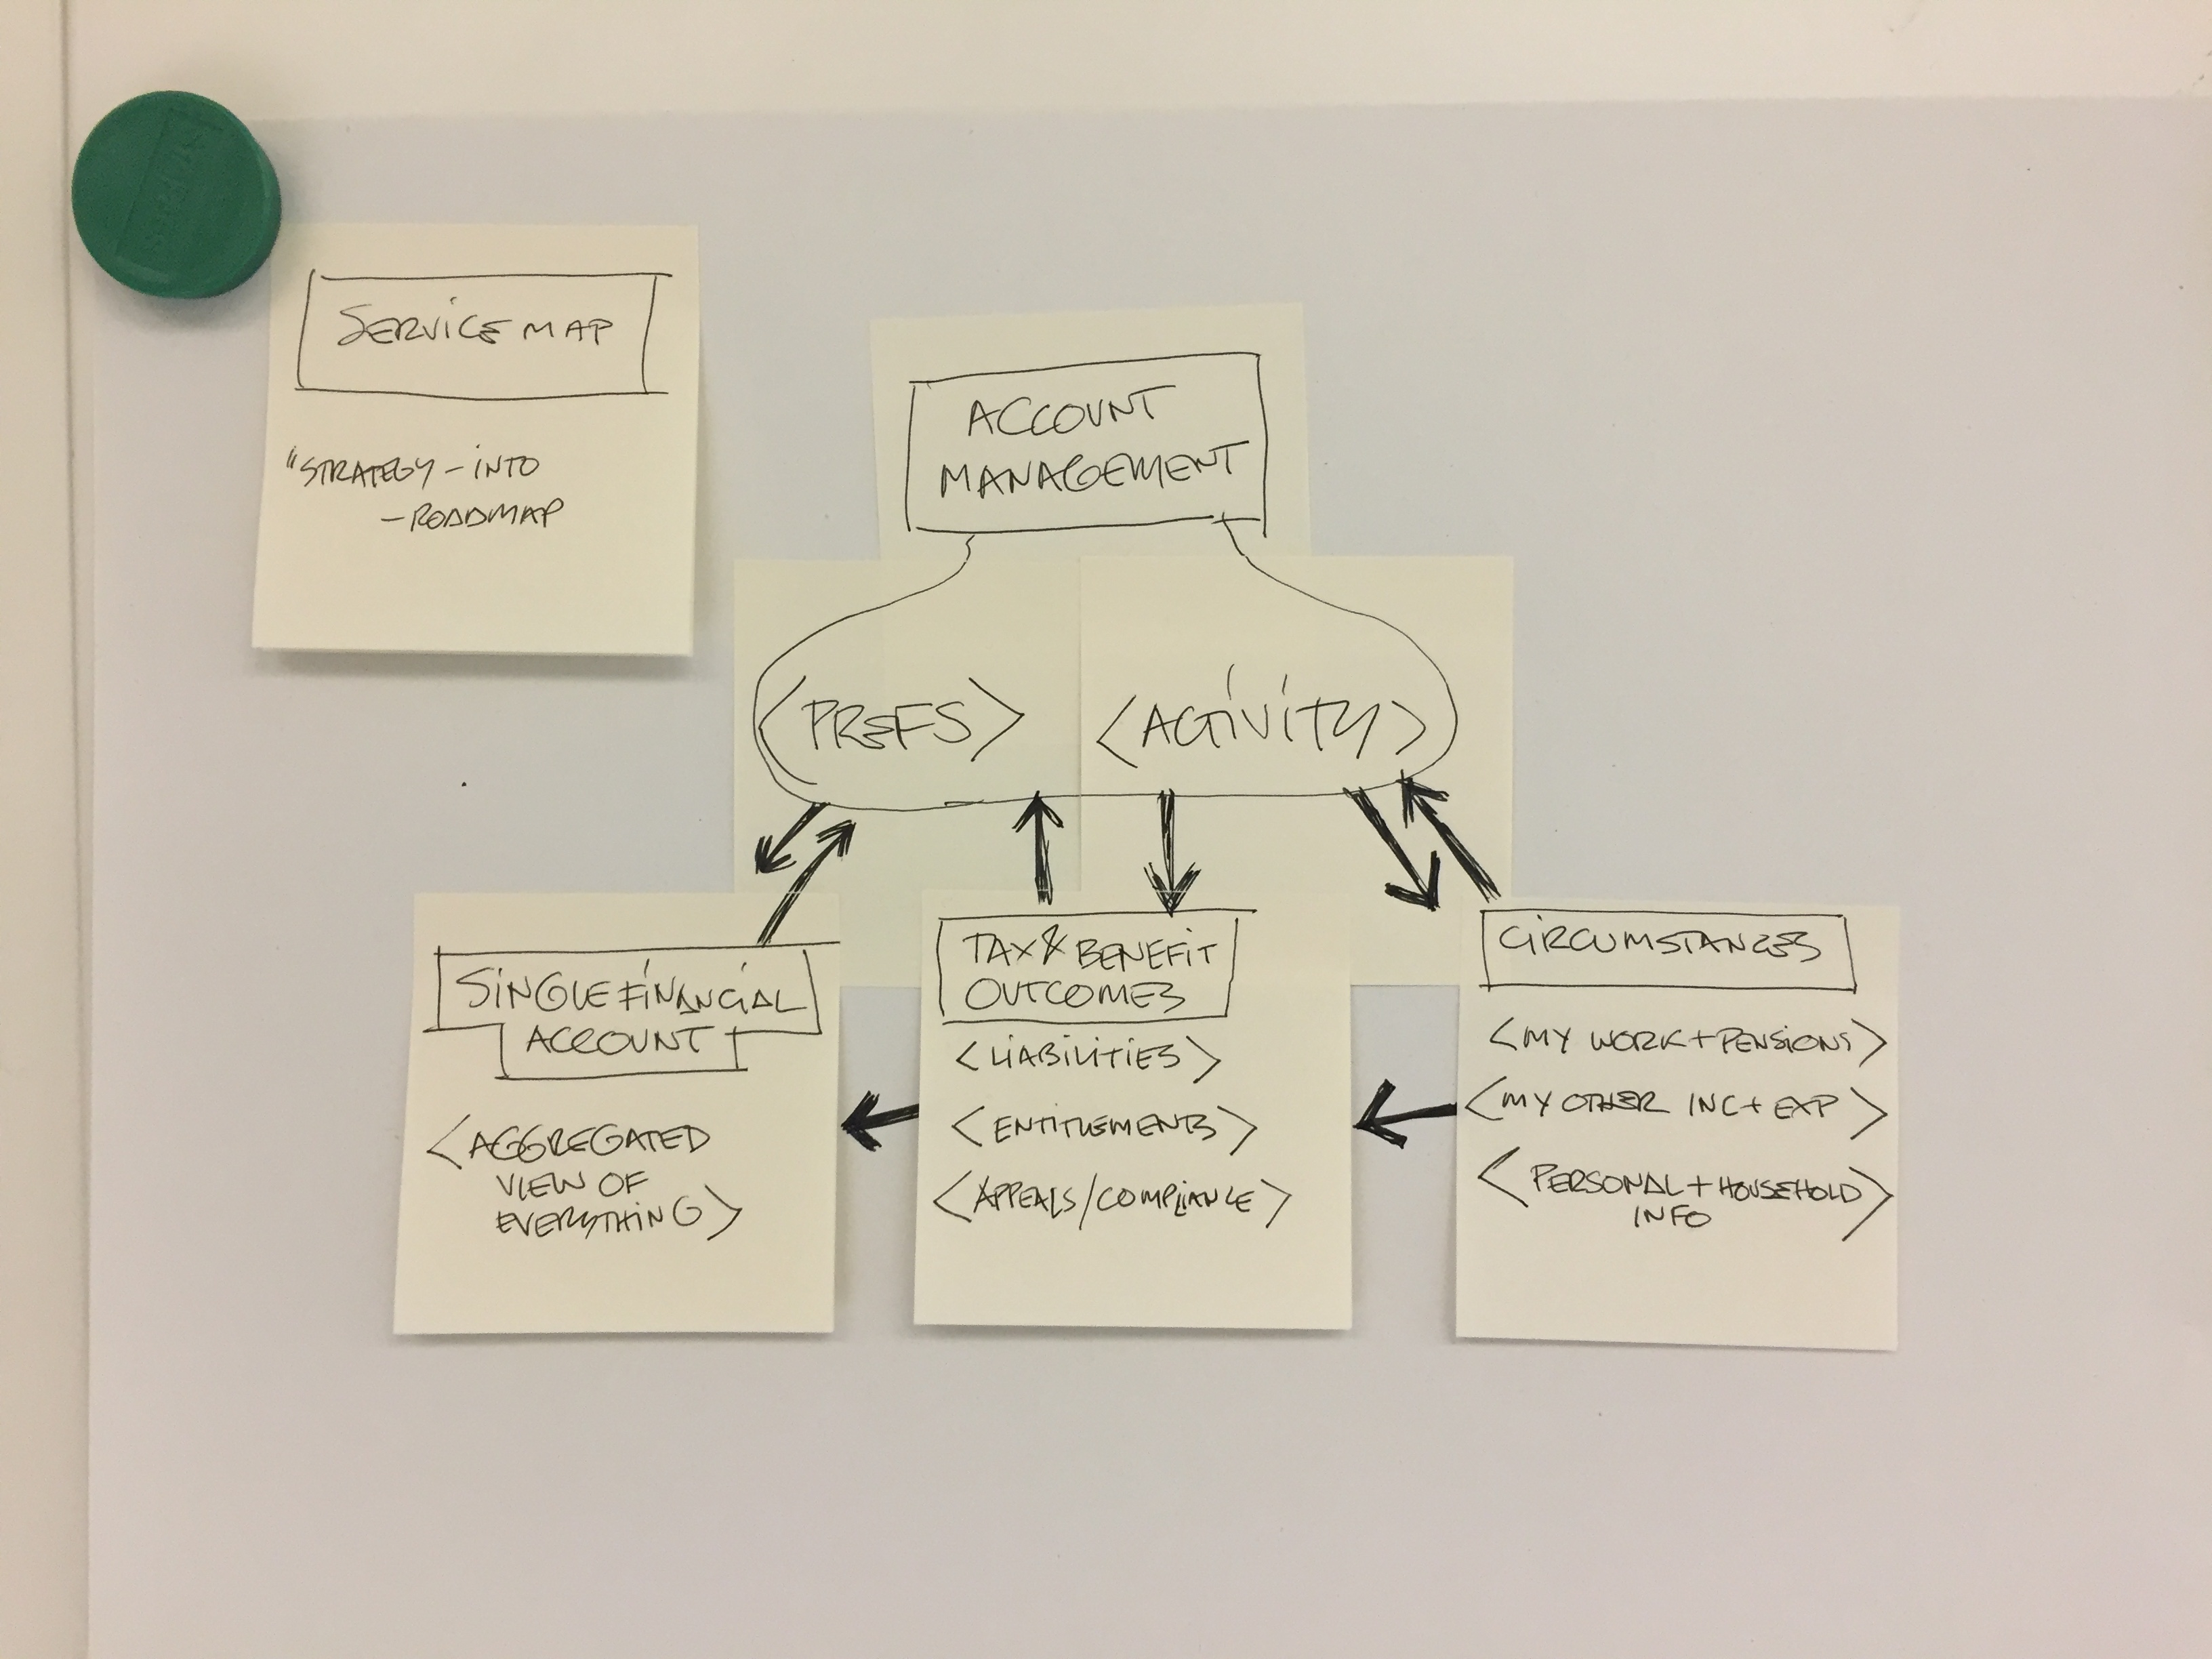 SERVICE MAP
"STRATEGY - INTO
- ROADMAP
ACCOUNT
MANAGEMENT
<PREFS>
<ACTIVITY>
SINGLE FINANCIAL
ACCOUNT
<AGGREGATED
VIEW OF
EVERYTHING>
TAX & BENEFIT
OUTCOMES
<LIABILITIES>
<ENTITLEMENTS>
<APPEALS/COMPLIANCE>
CIRCUMSTANCES
<MY WORK + PENSIONS>
<MY OTHER INC + EXP>
<PERSONAL + HOUSEHOLD
INFO>